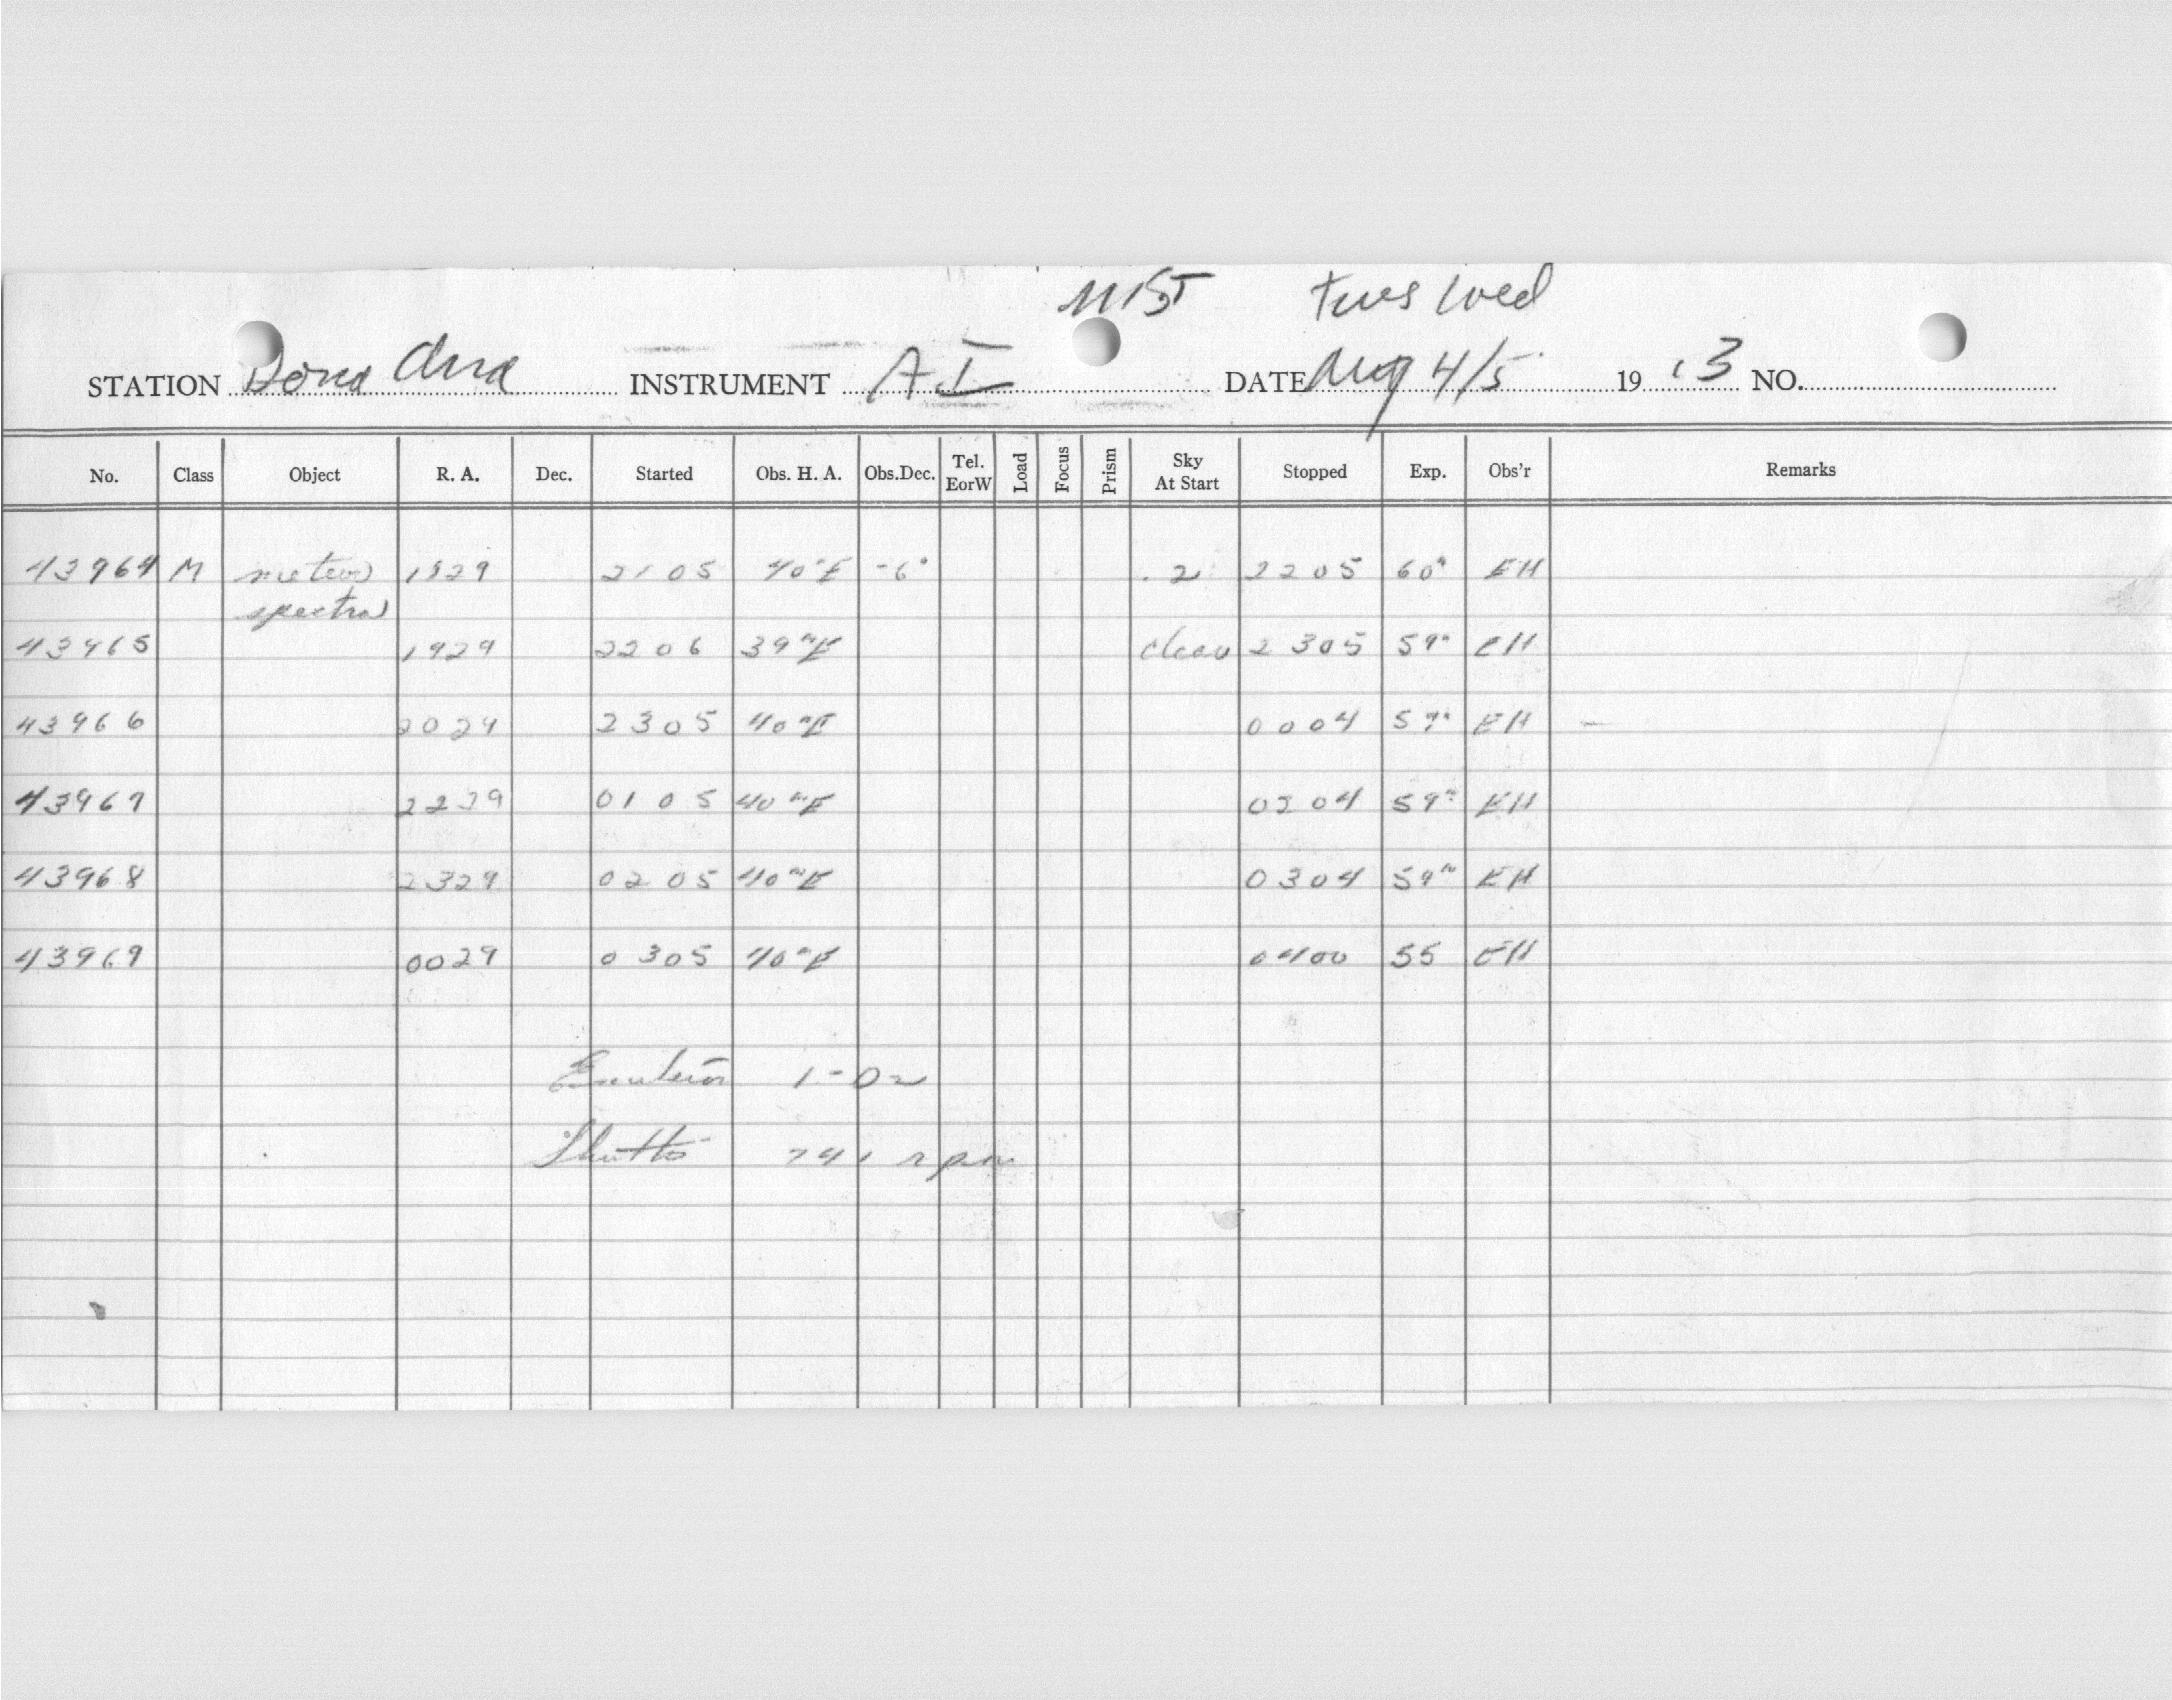 MST Tues Wed
STATION Dona Ana INSTRUMENT AI DATE Aug 4/5 19 53 NO.
No. Class Object R. A. Dec. Started Obs. H. A. Obs.Dec. Tel. EorW Load Focus Prism Sky At Start Stopped Exp. Obs'r Remarks
43964 M meteor 1829 2105 40ᵐE -6° .2 2205 60ᵐ EH
spectra
43965 1929 2206 39ᵐE clear 2305 59ᵐ EH
43966 2029 2305 40ᵐE 0004 59ᵐ EH -
43967 2229 0105 40ᵐE 0204 59ᵐ EH
43968 2329 0205 40ᵐE 0304 59ᵐ EH
43969 0029 0305 40ᵐE 0400 55 EH
Emulsion 1-02
Shutter 741 rpm